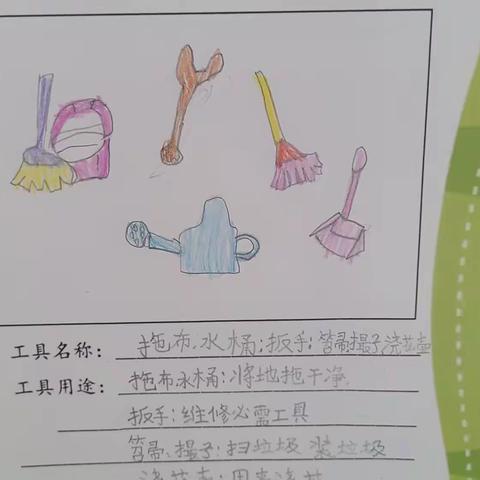 工具名称：拖布、水桶；扳手；笤帚撮子浇花壶
工具用途：拖布水桶：将地拖干净
扳手：维修必需工具
笤帚、撮子：扫垃圾 装垃圾
浇花壶：用来浇花